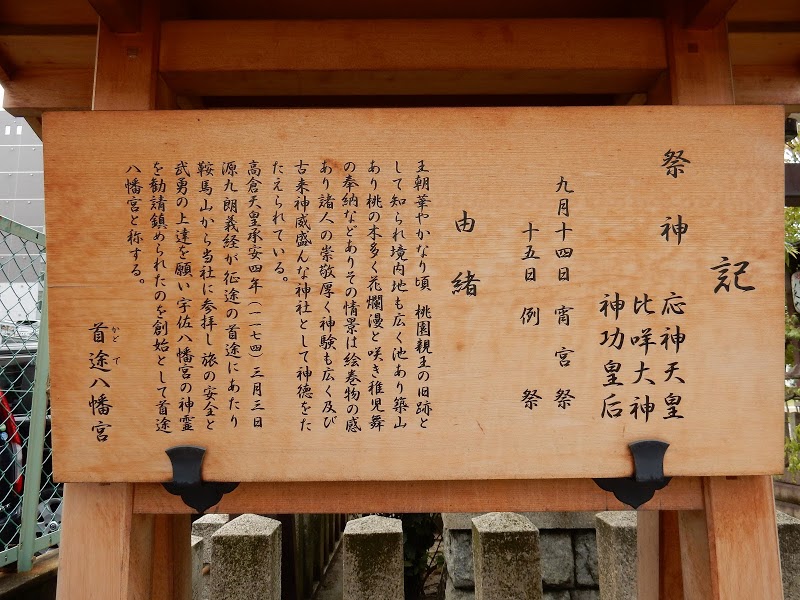 記
祭神 応神天皇
比咩大神
神功皇后
九月十四日 宵宮祭
十五日 例祭
由緒
王朝華やかなり頃 桃園親王の旧跡と
して知られ境内地も広く池あり築山
あり桃の木多く花爛漫と咲き稚児舞
の奉納などありその情景は絵巻物の感
あり諸人の崇敬厚く神験も広く及び
古来神威盛んな神社として神德をた
たえられている。
高倉天皇承安四年(一一七四)三月三日
源九朗義経が征途の首途にあたり
鞍馬山から当社に参拝し旅の安全と
武勇の上達を願い宇佐八幡宮の神霊
を勧請鎮められたのを創始として首途
八幡宮と称する。
首途八幡宮
かどで